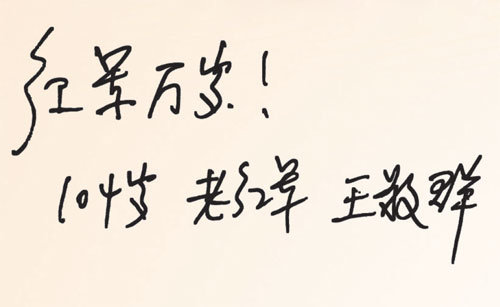 红军万岁！
104岁 老红军 王敬群